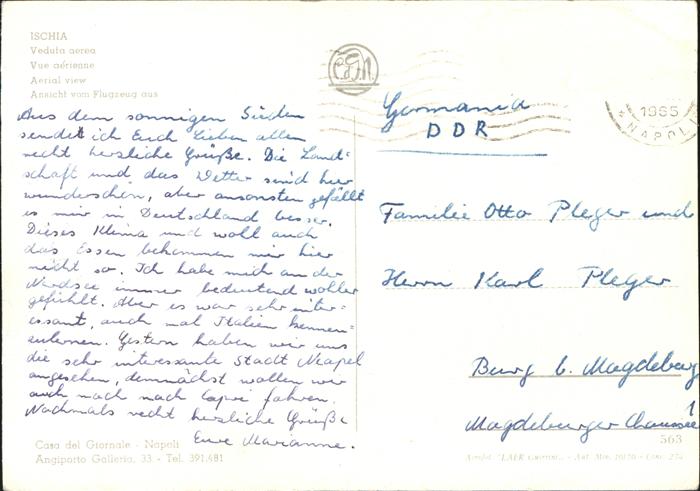 ISCHIA
Veduta aerea
Vue aérienne
Aerial view
Ansicht vom Flugzeug aus
Aus dem sonnigen Süden
sendet ich Euch Lieben allen
recht herzliche Grüße. Die Land-
schaft und das Wetter sind hier
wunderschön, aber ansonsten gefällt
es mir in Deutschland besser.
Dieses Klima und wohl auch
das Essen bekommen mir hier
nicht so. Ich habe mich an der
Nordsee immer bedeutend woller
gefühlt. Aber es war sehr inter-
essant, auch mal Italien kennen-
zulernen. Gestern haben wir uns
die sehr interessante Stadt Neapel
angesehen, demnächst wollen wir
auch noch nach Capri fahren.
Nochmals recht herzliche Grüße
Eure Marianne.
Casa del Giornale - Napoli
Angiporto Galleria, 33 - Tel. 391.481
1965
NAPOLI
Germania
DDR
Familie Otto Pleger und
Herrn Karl Pleger
Burg b. Magdeburg
Magdeburger Chaussee
1
563